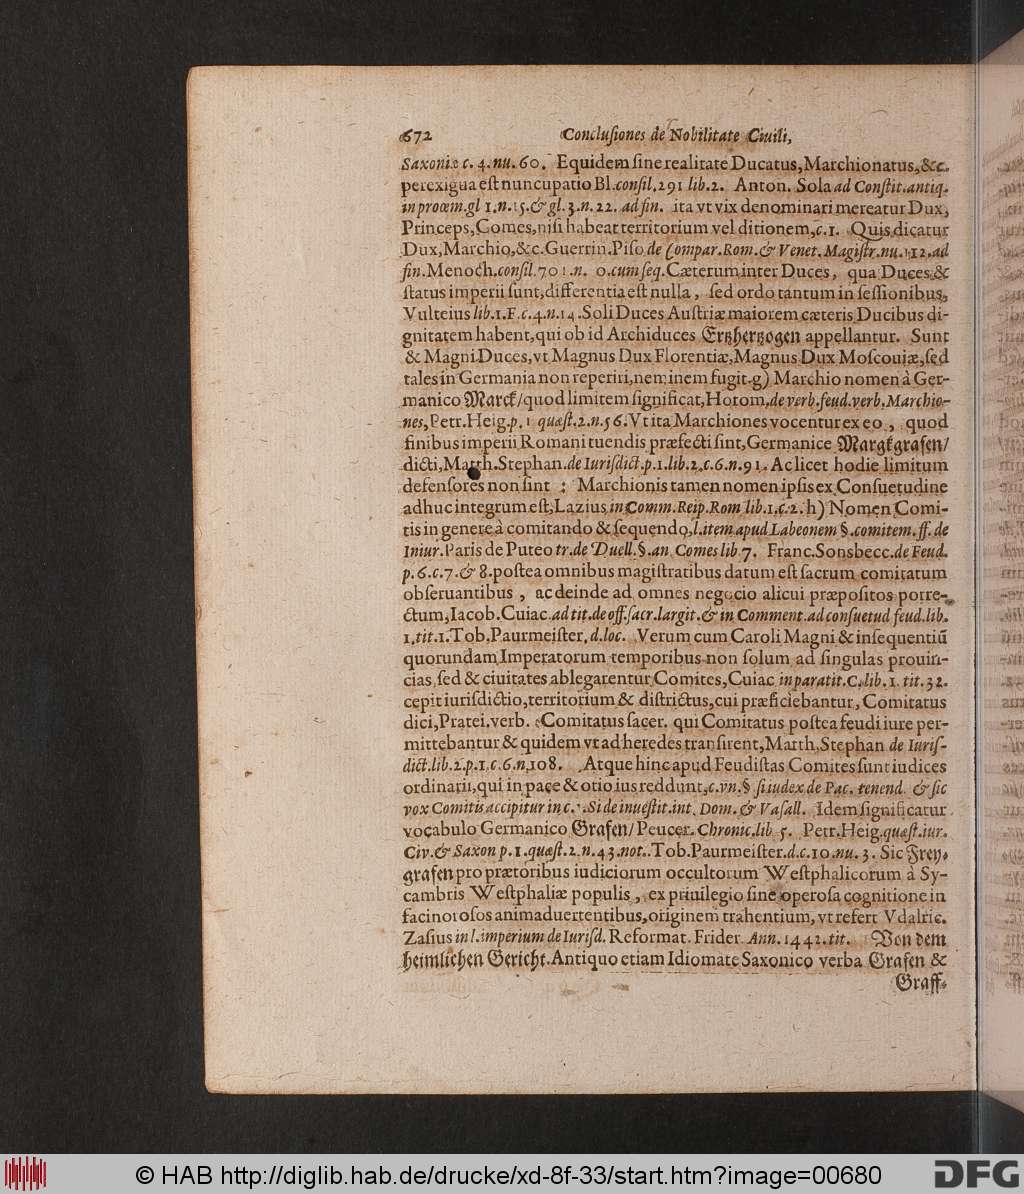 672 Conclusiones de Nobilitate Ciuili,
Saxoniæ c. 4. nu. 60. Equidem sine realitate Ducatus, Marchionatus, &c.
perexigua est nuncupatio Bl. consil. 291 lib. 2. Anton. Sola ad Constit. antiq.
in proœm. gl 1. n. 15. & gl. 3. n. 22. ad fin. ita vt vix denominari mereatur Dux,
Princeps, Comes, nisi habeat territorium vel ditionem, c. 1. Quis dicatur
Dux, Marchio, &c. Guerrin. Piso de Compar. Rom. & Venet. Magistr. nu. 112. ad
fin. Menoch. consil. 701. n. 0. cum seq. Cæterum inter Duces, qua Duces &
status imperii sunt, differentia est nulla, sed ordo tantum in sessionibus,
Vulteius lib. 1. F. c. 4. n. 14. Soli Duces Austriæ maiorem cæteris Ducibus di-
gnitatem habent, qui ob id Archiduces Ertzhertzogen appellantur. Sunt
& Magni Duces, vt Magnus Dux Florentiæ, Magnus Dux Moscouiæ, sed
tales in Germania non reperiri, neminem fugit. g) Marchio nomen à Ger-
manico Marck/ quod limitem significat, Hotom. de verb. feud. verb. Marchio-
nes, Petr. Heig. p. 1 quæst. 2. n. 56. Vt ita Marchiones vocentur ex eo, quod
finibus imperii Romani tuendis præfecti sint, Germanice Margkgrafen/
dicti, Matth. Stephan. de Iurisdict. p. 1. lib. 2. c. 6. n. 91. Ac licet hodie limitum
defensores non sint : Marchionis tamen nomen ipsis ex Consuetudine
adhuc integrum est, Lazius in Comm. Reip. Rom lib. 1. c. 2. h) Nomen Comi-
tis in genere à comitando & sequendo, l. item apud Labeonem §. comitem. ff. de
Iniur. Paris de Puteo tr. de Duell. §. an Comes lib 7. Franc. Sonsbecc. de Feud.
p. 6. c. 7. & 8. postea omnibus magistratibus datum est sacrum comitatum
obseruantibus, ac deinde ad omnes negocio alicui præpositos porre-
ctum, Iacob. Cuiac. ad tit. de off. sacr. largit. & in Comment. ad consuetud feud. lib.
1. tit. 1. Tob. Paurmeister. d. loc. Verum cum Caroli Magni & insequentiū
quorundam Imperatorum temporibus non solum ad singulas prouin-
cias, sed & ciuitates ablegarentur Comites, Cuiac in paratit. C. lib. 1. tit. 32.
cepit iurisdictio, territorium & districtus, cui præficiebantur, Comitatus
dici, Pratei. verb. Comitatus sacer. qui Comitatus postea feudi iure per-
mittebantur & quidem vt ad heredes transirent, Matth. Stephan de Iuris-
dict. lib. 2. p. 1. c. 6. n. 108. Atque hinc apud Feudistas Comites sunt iudices
ordinarii, qui in pace & otio ius reddunt, c. vn. § si iudex de Pac. tenend. & sic
vox Comitis accipitur in c. 1. Si de inuestit. int. Dom. & Vasall. Idem significatur
vocabulo Germanico Grafen/ Peucer. Chronic. lib 5. Petr. Heig. quæst. iur.
Civ. & Saxon p. 1. quæst. 2. n. 43. not. Tob. Paurmeister. d. c. 10. nu. 3. Sic Frey-
grafen pro prætoribus iudiciorum occultorum Westphalicorum à Sy-
cambris Westphaliæ populis, ex priuilegio sine operosa cognitione in
facinorosos animaduertentibus, originem trahentium, vt refert Vdalric.
Zasius in l. imperium de Iurisd. Reformat. Frider. Ann. 1442. tit. Von dem
heimlichen Gericht. Antiquo etiam Idiomate Saxonico verba Grafen &
Graff-
© HAB http://diglib.hab.de/drucke/xd-8f-33/start.htm?image=00680
DFG